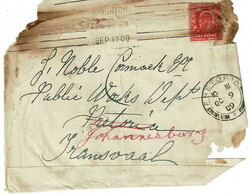 SEP 17 09
J. Noble Cormack Esq
Public Works Dept
Pretoria
Johannesburg
Transvaal